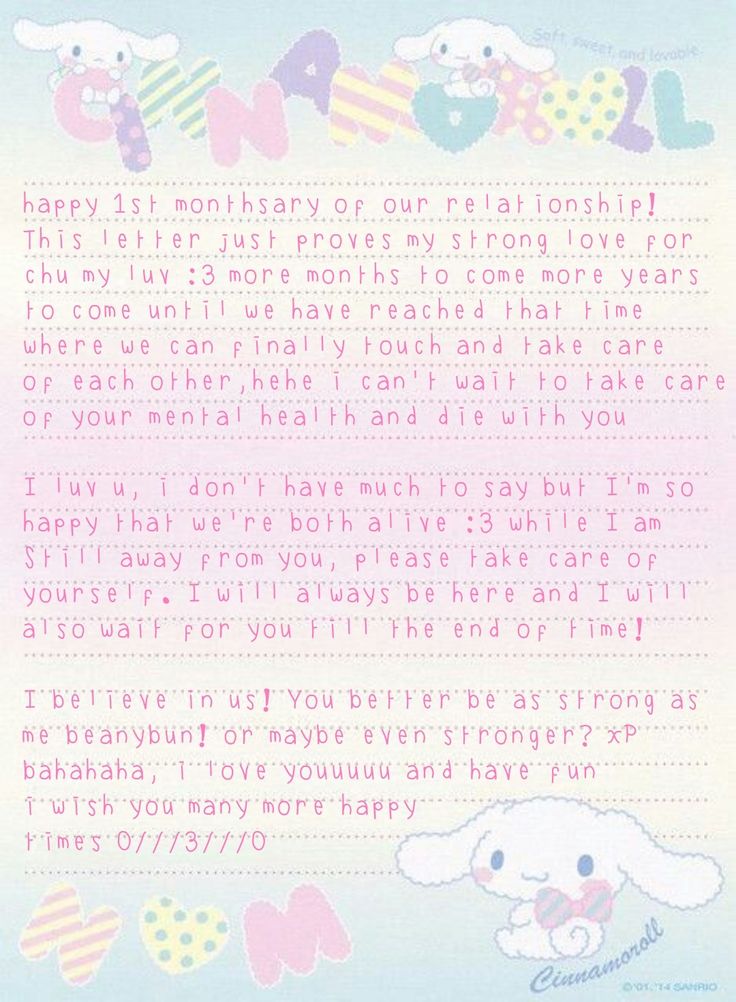 Soft, sweet, and lovable
CINNAMOROLL
happy 1st monthsary of our relationship!
This letter just proves my strong love for
chu my luv :3 more months to come more years
to come until we have reached that time
where we can finally touch and take care
of each other,hehe i can't wait to take care
of your mental health and die with you
I luv u, i don't have much to say but I'm so
happy that we're both alive :3 while I am
Still away from you, please take care of
yourself. I will always be here and I will
also wait for you till the end of time!
I believe in us! You better be as strong as
me beanybun! or maybe even stronger? xP
bahahaha, i love youuuuu and have fun
i wish you many more happy
times O///3///O
N M
Cinnamoroll
©'01,'14 SANRIO